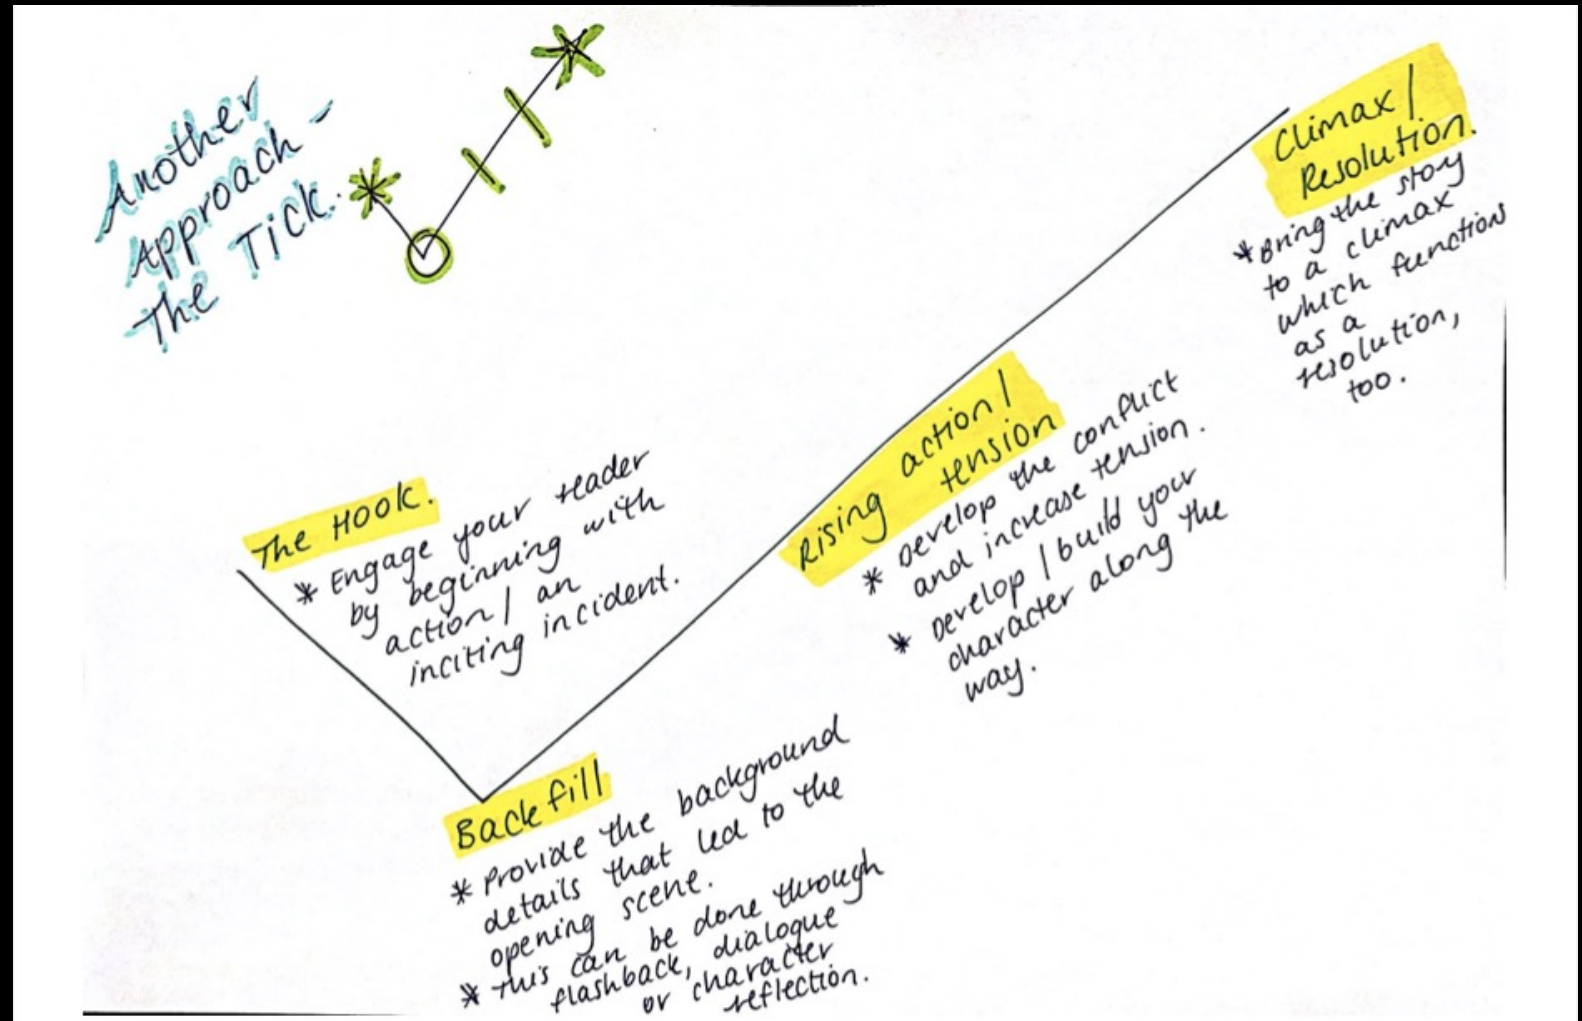 Another
Approach -
The Tick.
The Hook.
* Engage your reader
by beginning with
action / an
inciting incident.
Backfill
* Provide the background
details that led to the
opening scene.
* This can be done through
flashback, dialogue
or character
reflection.
Rising action /
tension
* Develop the conflict
and increase tension.
* Develop / build your
character along the
way.
Climax /
Resolution.
* Bring the story
to a climax
which functions
as a
resolution,
too.